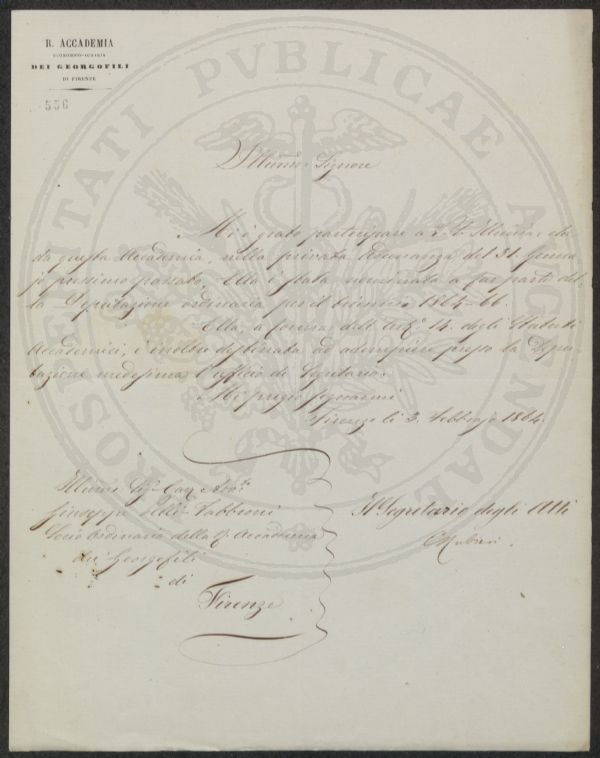 R. ACCADEMIA
ECONOMICO-AGRARIA
DEI GEORGOFILI
DI FIRENZE
556
PROSPERITATI PVBLICAE AVGENDAE
Illumo Signore
Mi è grato participare a V. S. Illuma, che
da questa Accademia, nella privata Adunanza del 31. Genna
jo prossimo passato, Ella è stata nominata a far parte del
la Deputazione ordinaria per il biennio 1864-66.
Ella, a forma dell' Art.o 14. degli Statuti
Accademici, è inoltre destinata ad adempiere presso la Depu
tazione medesima l'ufficio di Segretario.
Mi pregio segnarmi
Firenze li 3. Febbrajo 1864.
Illumo Sigr Cav. Avvo
Giuseppe Fabbroni
Socio Ordinario della R. Accademia
dei Georgofili
di
Firenze
Il Segretario degli Atti
Rubieri